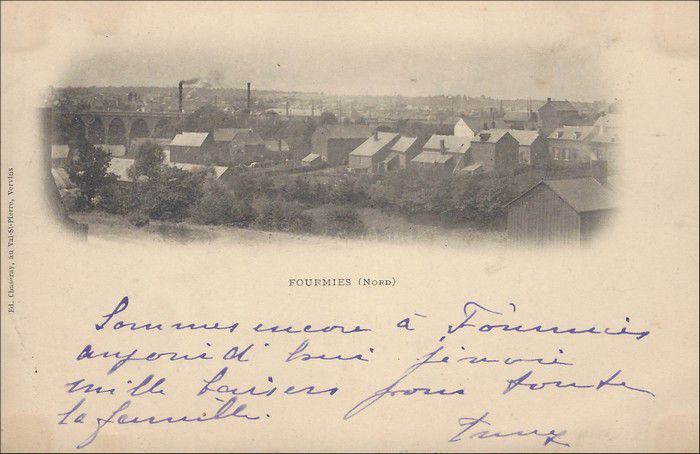 Ed. Chaseray, au Val-St-Pierre, Vervins
FOURMIES (NORD)
Sommes encore à Fourmies
aujourd'hui j'envoie
mille baisers pour toute
la famille.